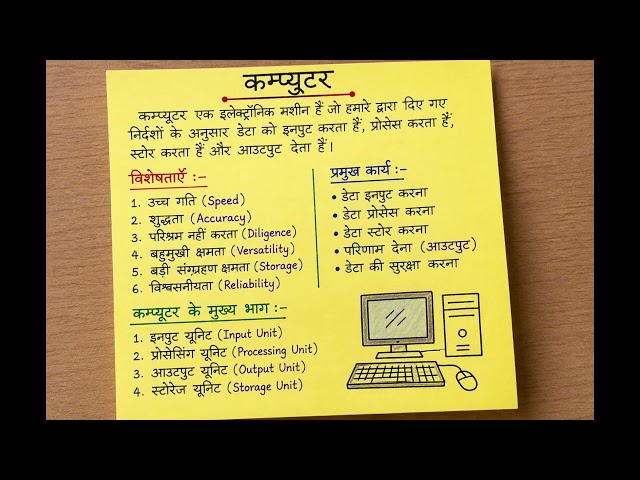 कम्प्युटर
कम्प्यूटर एक इलेक्ट्रॉनिक मशीन हैं जो हमारे द्वारा दिए गए
निर्दशों के अनुसार डेटा को इनपुट करता हैं, प्रोसेस करता हैं,
स्टोर करता हैं और आउटपुट देता हैं।
विशेषताएँ :-
1. उच्च गति (Speed)
2. शुद्धता (Accuracy)
3. परिश्रम नहीं करता (Diligence)
4. बहुमुखी क्षमता (Versatility)
5. बड़ी संग्रहण क्षमता (Storage)
6. विश्वसनीयता (Reliability)
प्रमुख कार्य :-
• डेटा इनपुट करना
• डेटा प्रोसेस करना
• डेटा स्टोर करना
• परिणाम देना (आउटपुट)
• डेटा की सुरक्षा करना
कम्प्यूटर के मुख्य भाग :-
1. इनपुट यूनिट (Input Unit)
2. प्रोसेसिंग यूनिट (Processing Unit)
3. आउटपुट यूनिट (Output Unit)
4. स्टोरेज यूनिट (Storage Unit)